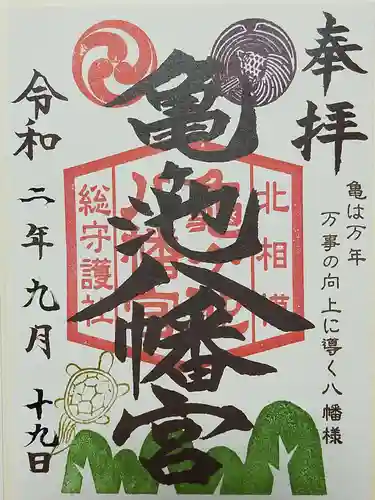 奉拝
亀は万年
万事の向上に導く八幡様
亀池八幡宮
北相模
総守護社
令和二年九月十九日